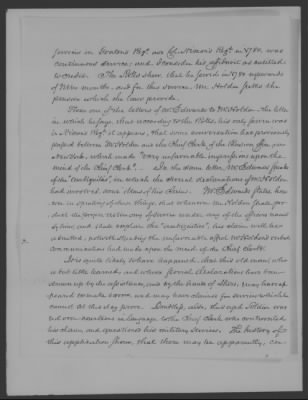 service in Groton's Regt. nor Col. Nixon's Regt. in 1780. was
continuous service; and I consider his affidavit as entitled
to credit. The Rolls show, that he served in 1780 upwards
of three months, and for this service, Mr. Holden gets the
pension which the law provides.
From one of the letters of Mr. Edwards to Mr. Holden, the letter
in which he says, that according to the Rolls, his only service was
in Nixon's Regt. it appears, that some conversation had previously
passed between Mr. Holden and the Chief Clerk of the Pension Office, in
New York, which made "very unfavorable impressions upon the
mind of the Chief Clerk". In the same letter, Mr. Edwards speaks
of the "ambiguities", in which the several declarations of Mr. Holden
had involved some items of his claim. Mr. Edwards states, how-
ever, in speaking of these things, that whenever Mr. Holden shall pro-
duce the proper testimony of service under any of the officers named
by him, and shall explain the "ambiguities", his claim will be
admitted, notwithstanding the unfavorable effect Mr. Holden's verbal
communication had made upon the mind of the Chief Clerk.
It is quite likely to have happened, that this old man, who
is but little learned, and whose several declarations have been
drawn up by the assistance, and by the hands of others, may have ap-
peared to make errors, and may have claims for service which he
cannot at this day prove. Doubtless, also, this aged soldier was
not over cautious in language to the Chief Clerk who controverted
his claim, and questioned his military service. The history of
this application shows, that there may be, apparently, con-